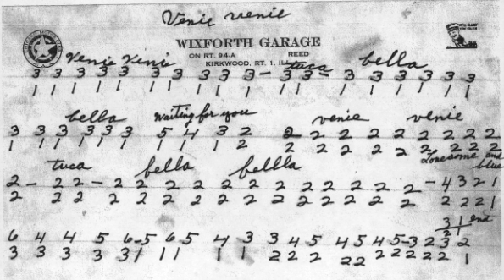 Venie venie
WIXFORTH GARAGE
ON RT. 94-A REED
KIRKWOOD, RT. 1, ILL.
Venie Venie tuca bella
3 3 3 3 3 3 3 3 3 - 3 3 - 3 3 3 3 3 3 3
1 1 1 1 1 1 1 1 1 1 1 1 1 1 1 1 1 1
bella waiting for you venie venie
3 3 3 3 3 3 5 4 3 2 2 2 2 2 2 2 2 2 2 2
1 1 1 1 1 1 1 1 1 2 2 2 2 2 2 2 2 2 2 2
tuca bella bellla Lonesome blue
2 - 2 2 - 2 2 2 2 2 2 2 2 2 2 2 - 4 3 2 1
2 2 2 2 2 2 2 2 2 2 2 2 2 2 2 2 2 2 1
3 1 end
6 4 4 5 6 - 5 6 5 4 3 3 4 5 4 5 4 5 - 3 2 3 2
3 3 3 3 3 1 1 1 1 1 2 2 2 2 2 2 2 2 2 2 1